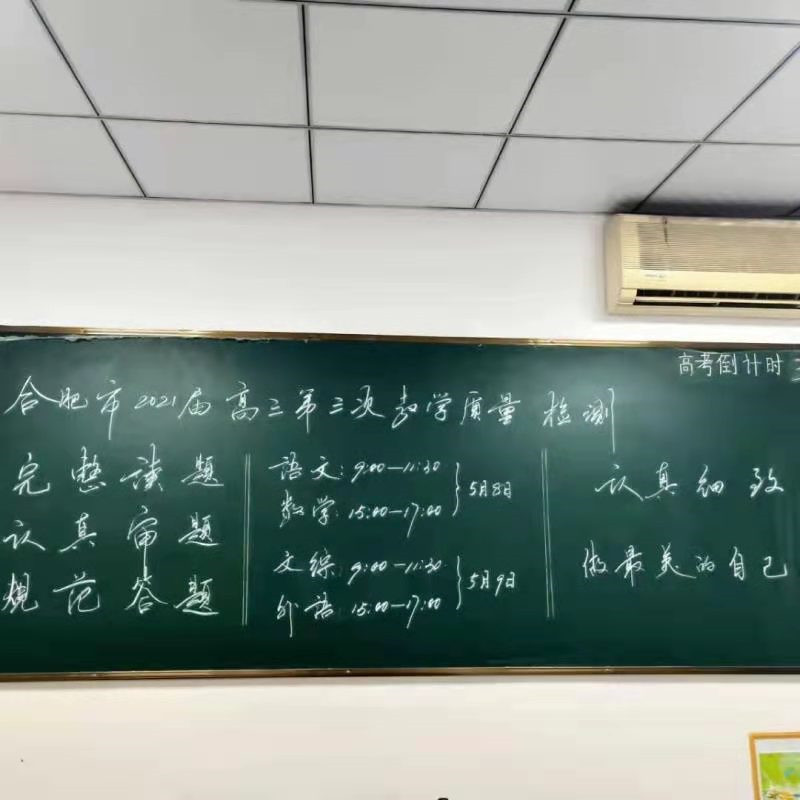 高考倒计时
合肥市2021届高三第三次教学质量检测
完整读题
认真审题
规范答题
语文:9:00—11:30
数学:15:00—17:00
5月8日
文综:9:00—11:30
外语:15:00—17:00
5月9日
认真细致
做最美的自己